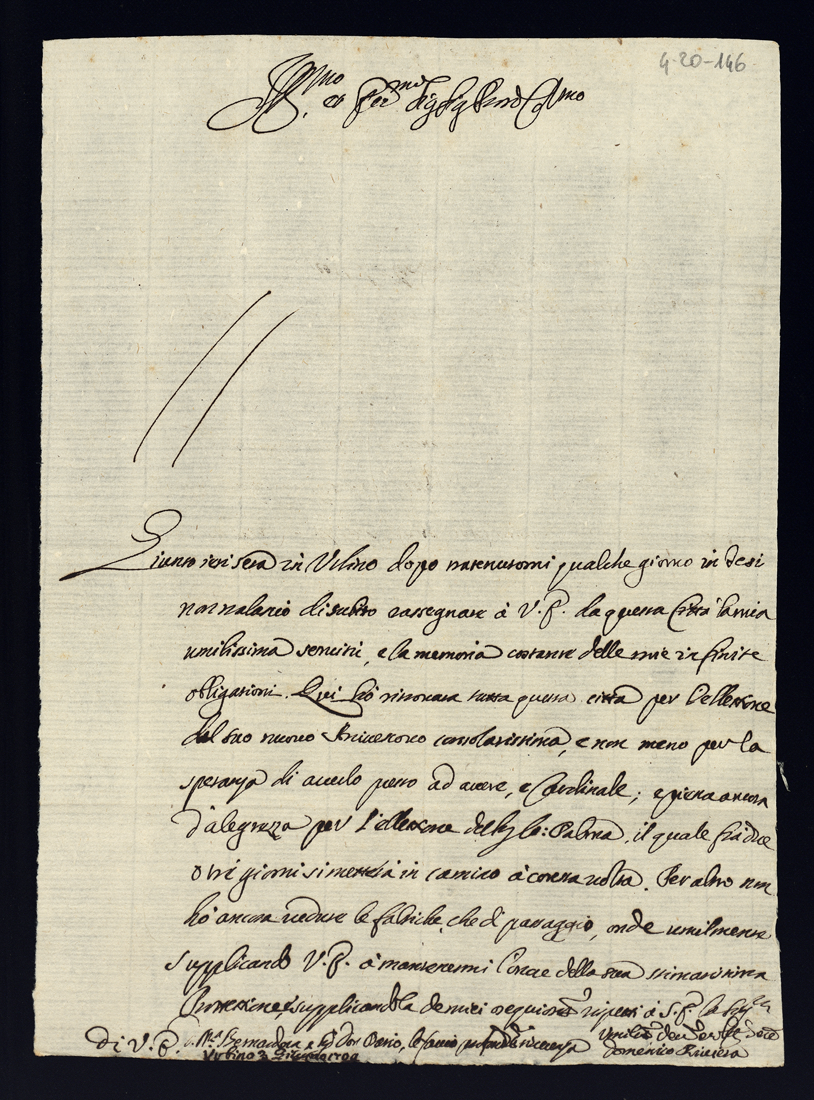 4-20-146
Ill.mo et Sig.r Sig.r Pron Col.mo
Giunto ieri sera in Urbino dopo trattenutomi qualche giorno in Iesi
non tralascio di subito rassegnare à V.E. da questa Città la mia
umilissima servitù, e la memoria costante delle mie infinite
obligationi. Qui hò ritrovata tutta questa città per l'ellettione
del suo nuovo Arcivescovo consolatissima, e non meno per la
speranza di averlo presto ad avere, e Cardinale; e piena ancora
d'alegrezza per l'ellettione del, il quale frà due
o trè giorni si metterà in camino à cotesta volta. Per altro non
hò ancora vedute le fabriche, che di passaggio, onde umilmente
supplicando V.E. à mantenermi l'onore della sua stimatissima
Protettione, e supplicandola de miei ossequiosi rispetti à S.E. la Sig.ra
di V.E. Bernardina e Don Orazio, le faccio
Urbino 2
Domenico Riviera